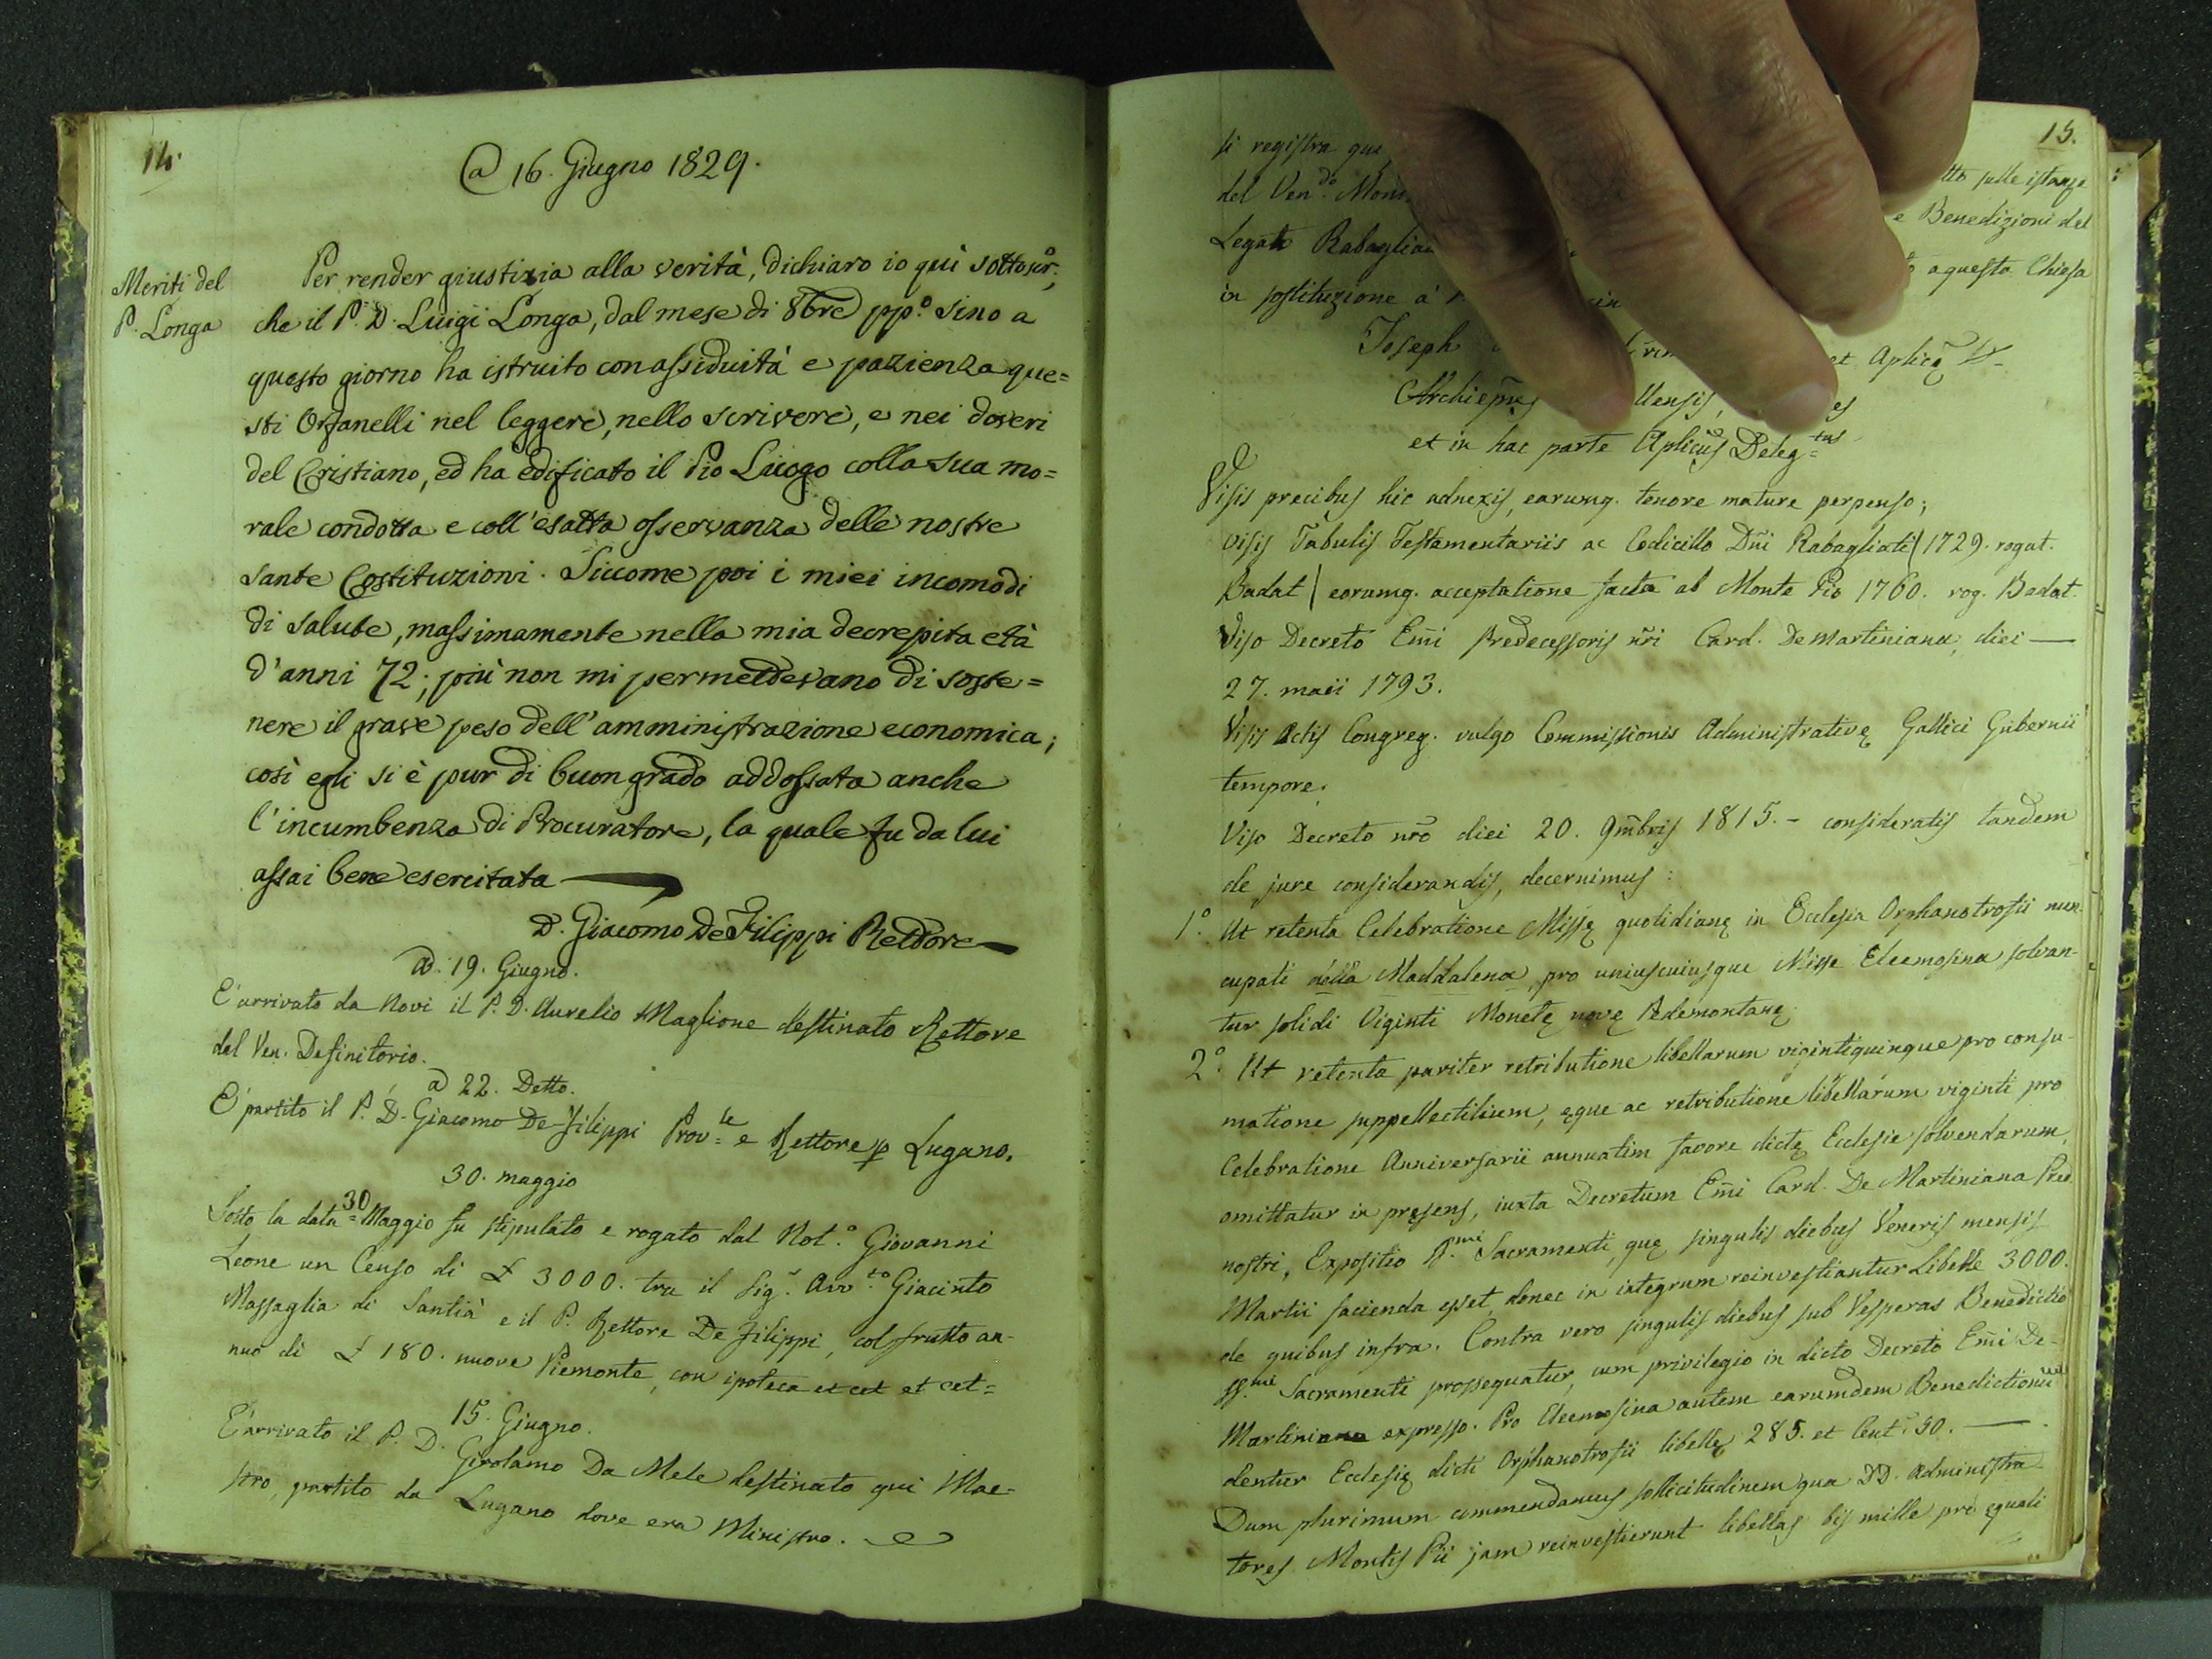 14.
a 16. Giugno 1829.
Meriti del
P. Longa
Per render giustizia alla verità, dichiaro io quì sottoscr.º,
che il P. D. Luigi Longa, dal mese di 8bre pp.º sino a
questo giorno ha istruito con assiduità e pazienza que=
sti Orfanelli nel leggere, nello scrivere, e nei doveri
del Cristiano, ed ha edificato il Pio Luogo colla sua mo=
rale condotta e coll'esatta osservanza delle nostre
sante Costituzioni. Siccome poi i miei incomodi
di salute, massimamente nella mia decrepita età
d'anni 72; più non mi permettevano di soste=
nere il grave peso dell'amministrazione economica;
così egli si è pur di buon grado addossata anche
l'incumbenza di Procuratore, la quale fu da lui
assai bene esercitata
D. Giacomo De Filippi Rettore
a. 19. Giugno.
E' arrivato da Novi il P. D. Aurelio Maglione destinato Rettore
del Ven. Definitorio.
a 22. Detto.
E' partito il P. D. Giacomo De-Filippi Prov=le e Rettore p Lugano.
30. maggio
Sotto la data 30 = Maggio fu stipulato e rogato dal Not.º Giovanni
Leone un Censo di £ 3000. tra il Sig.r Avv.to Giacinto
Massaglia di Santià e il P. Rettore De Filippi, col frutto an-
nuo di £ 180. nuove Piemonte, con ipoteca et cet et cet=
15. Giugno.
E' arrivato il P. D. Girolamo Da Mele destinato qui Mae-
stro, partito da Lugano dove era Ministro.
15.
si registra que tto sulle istanze
del Ven.do Mon e Benedizioni del
Legato Rabaglia a questa Chiesa
in sostituzione a'
Joseph et Aplicę
Archiepũs llensis, es
et in hac parte Aplicũs Deleg=tus
Visis precibus hic adnexis, earumq. tenore mature perpenso;
Visis Tabulis Testamentariis ac Codicillo Dñi Rabagliati / 1729. rogat.
Badat / eorumq. acceptatione facta ab Monte Pio 1760. rog. Badat.
Viso Decreto Emi Predecessoris ñri Card. De martiniana, diei —
27. maii 1793.
Visis Actis Congreg. vulgo Commissionis Administrativę Gallici Gubernii
tempore.
Viso Decreto nrõ diei 20. 9mbris 1815. - consideratis tandem
de jure considerandis, decernimus:
1.º Ut retenta Celebratione Missę quotidianę in Ecclesia Orphanotrofii nun-
cupati della Maddalena, pro uniuscuiusque Misse Eleemosina solvan-
tur solidi Viginti Monetę novę Pedemontanę.
2.º Ut retenta pariter retributione libellarum vigintiquinque pro consu-
matione suppellectilium, ęque ac retributione libellarum viginti pro
Celebratione Anniversarii annuatim favore dictę Ecclesie solvendarum,
omittatur in pręsens, iuxta Decretum Emi Card. De Martiniana Pred.
nostri, Expositio S.mi Sacramenti, quę singulis diebus Veneris mensis
Martii facienda esset, donec in integrum reinvestiantur Libelle 3000.
de quibus infra. Contra vero singulis diebus sub Vesperas Benedictio
SS.mi Sacramenti prossequatur, cum privilegio in dicto Decreto Emi De-
Martiniana expresso. Pro Eleemosina autem earumdem Benedictionum
dentur Ecclesię dicti Orphanotrofii libellę 285. et Cent. 50. —
Dum plurimum commendamus sollicitudinem qua DD. Administra-
tores Montis Pii jam reinvestierunt libellas bis mille pro ęquali